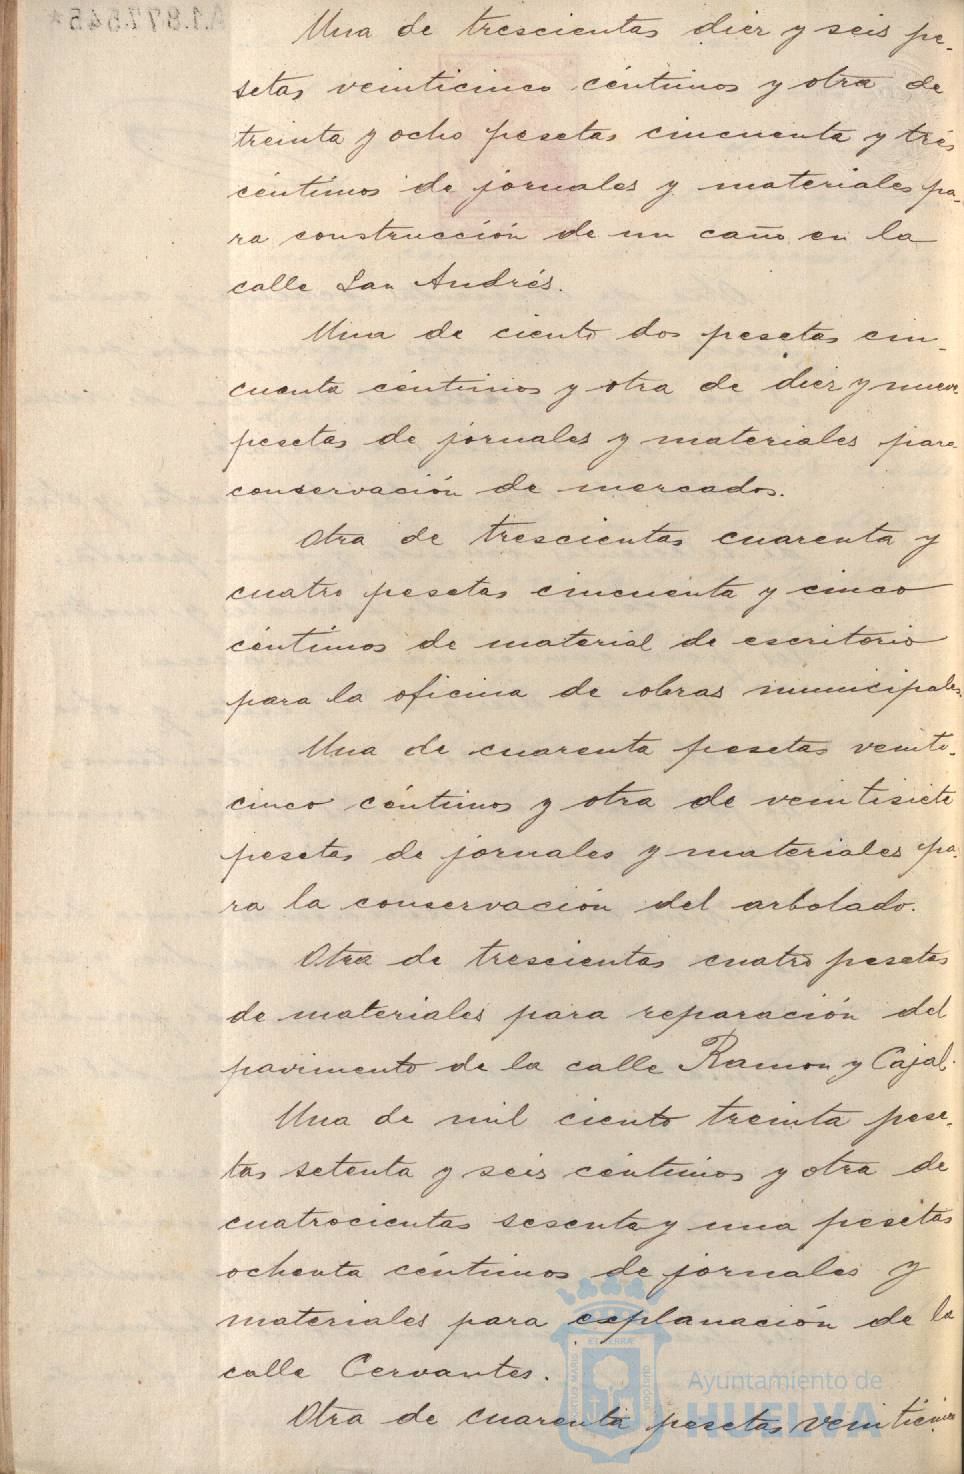 A.1.877.545*
Una de trescientas diez y seis pe-
setas veinticinco céntimos y otra de
treinta y ocho pesetas cincuenta y trés
céntimos de jornales y materiales pa-
ra construcción de un caño en la
calle San Andrés.
Una de ciento dos pesetas cin-
cuenta céntimos y otra de diez y nueve
pesetas de jornales y materiales para
conservación de mercados.
Otra de trescientas cuarenta y
cuatro pesetas cincuenta y cinco
céntimos de material de escritorio
para la oficina de obras municipales.
Una de cuarenta pesetas veinti-
cinco céntimos y otra de veintisiete
pesetas de jornales y materiales pa-
ra la conservación del arbolado.
Otra de trescientas cuatro pesetas
de materiales para reparación del
pavimento de la calle Ramon y Cajal.
Una de mil ciento treinta pese-
tas setenta y seis céntimos y otra de
cuatrocientas sesenta y una pesetas
ochenta céntimos de jornales y
materiales para explanación de la
calle Cervantes.
Otra de cuarenta pesetas veinticinco
Ayuntamiento de
HUELVA